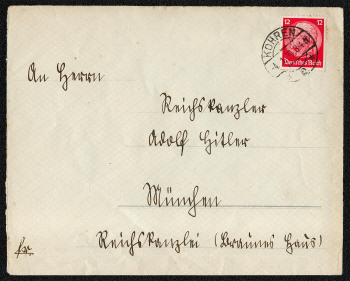 12 12
Deutsches Reich
KOHREN
An Herrn
Reichskanzler
Adolf Hitler
München
Reichskanzlei (Braunes Haus)
Fr.